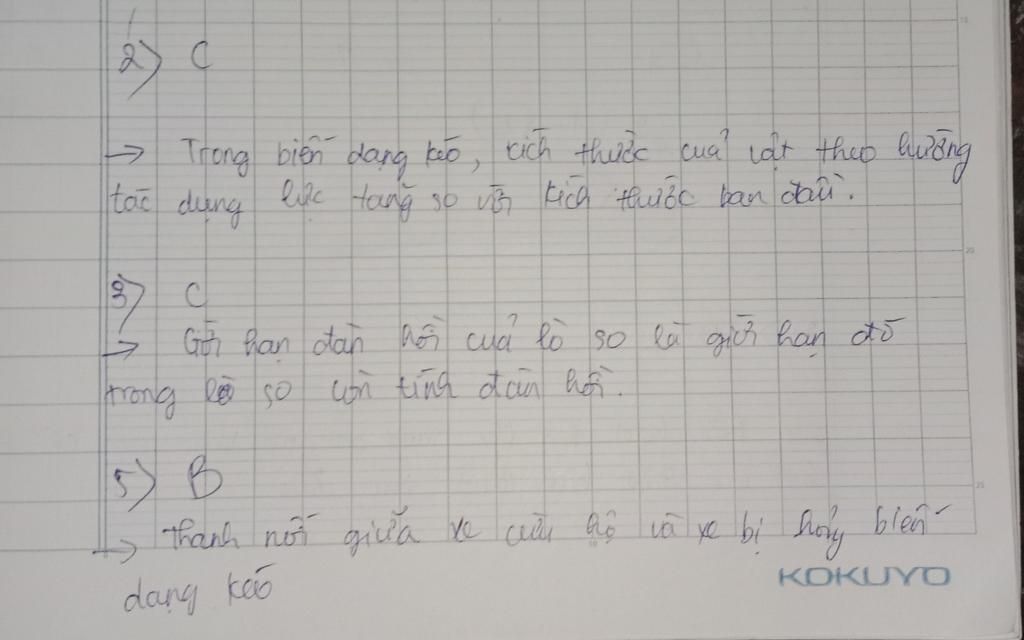 2) C
→ Trong biến dạng kéo, kích thước cuả vật theo hướng
tác dụng lực tăng so với kích thước ban đầu.
3) C
→ Giới hạn đàn hồi cuả lò so là giới hạn đó
trong lò so còn tính đàn hồi.
5) B
→ thanh nối giữa xe cứu hộ và xe bị hỏng biến
dạng kéo
KOKUYO